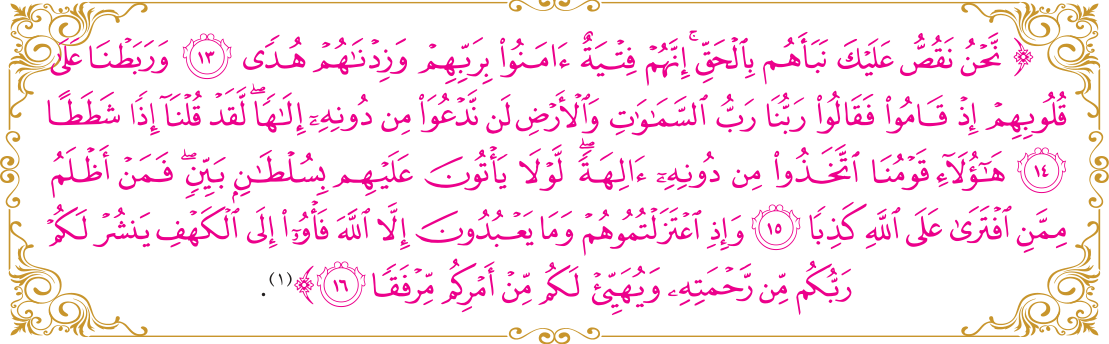 ﴿ نَّحۡنُ نَقُصُّ عَلَيۡكَ نَبَأَهُم بِٱلۡحَقِّۚ إِنَّهُمۡ فِتۡيَةٌ ءَامَنُواْ بِرَبِّهِمۡ وَزِدۡنَٰهُمۡ هُدٗى ١٣ وَرَبَطۡنَا عَلَىٰ
قُلُوبِهِمۡ إِذۡ قَامُواْ فَقَالُواْ رَبُّنَا رَبُّ ٱلسَّمَٰوَٰتِ وَٱلۡأَرۡضِ لَن نَّدۡعُوَاْ مِن دُونِهِۦٓ إِلَٰهٗاۖ لَّقَدۡ قُلۡنَآ إِذٗا شَطَطًا
١٤ هَٰٓؤُلَآءِ قَوۡمُنَا ٱتَّخَذُواْ مِن دُونِهِۦٓ ءَالِهَةٗۖ لَّوۡلَا يَأۡتُونَ عَلَيۡهِم بِسُلۡطَٰنِۭ بَيِّنٖۖ فَمَنۡ أَظۡلَمُ
مِمَّنِ ٱفۡتَرَىٰ عَلَى ٱللَّهِ كَذِبٗا ١٥ وَإِذِ ٱعۡتَزَلۡتُمُوهُمۡ وَمَا يَعۡبُدُونَ إِلَّا ٱللَّهَ فَأۡوُۥٓاْ إِلَى ٱلۡكَهۡفِ يَنشُرۡ لَكُمۡ
رَبُّكُم مِّن رَّحۡمَتِهِۦ وَيُهَيِّئۡ لَكُم مِّنۡ أَمۡرِكُم مِّرۡفَقٗا ١٦ ﴾(١).